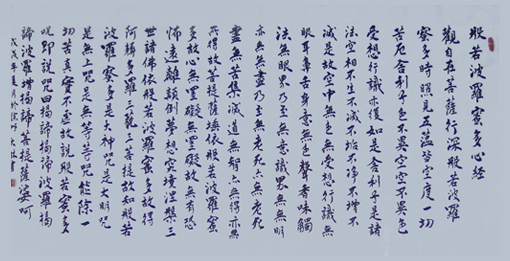 般若波羅蜜多心經
觀自在菩薩行深般若波羅
蜜多時照見五蘊皆空度一切
苦厄舍利子色不異空空不異色
受想行識亦復如是舍利子是諸
法空相不生不滅不垢不净不增不
減是故空中無色無受想行識無
眼耳鼻舌身意無色聲香味觸
法無眼界乃至無意識界無無明
亦無無盡乃至無老死亦無老死
盡無苦集滅道無智亦無得亦無
所得故菩提薩埵依般若波羅蜜
多故心無罣礙無罣礙故無有恐
怖遠離顛倒夢想究竟涅槃三
世諸佛依般若波羅蜜多故得
阿耨多羅三藐三菩提故知般若
波羅蜜多是大神咒是大明咒
是無上咒是無等等咒能除一
切苦真實不虛故說般若蜜多
呪即說咒曰揭諦揭諦波羅揭
諦波羅增揭諦菩提薩婆呵
戊戌年夏月於書